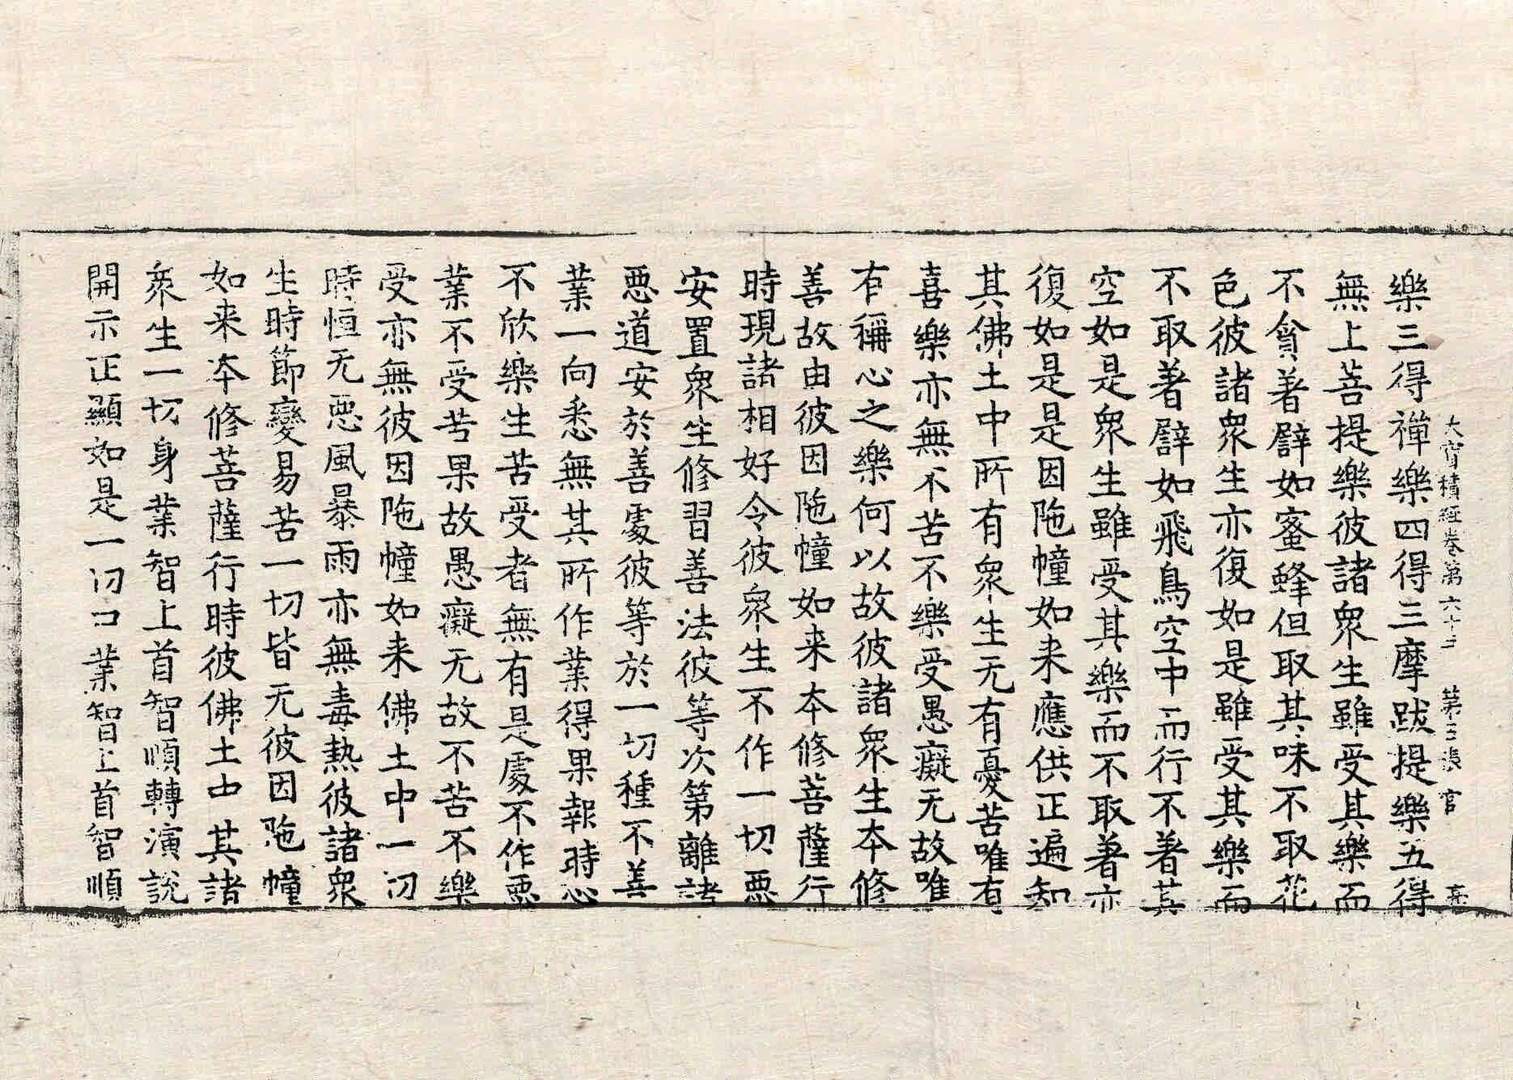 大寶積經卷第六十三 第三張 官 髙
樂三得禪樂四得三摩跋提樂五得
無上菩提樂彼諸衆生雖受其樂而
不貪著譬如蜜蜂但取其味不取花
色彼諸衆生亦復如是雖受其樂而
不取著譬如飛鳥空中而行不著其
空如是衆生雖受其樂而不取著亦
復如是是因陁幢如来應供正遍知
其佛土中所有衆生无有憂苦唯有
喜樂亦無不苦不樂受愚癡无故唯
有稱心之樂何以故彼諸衆生本修
善故由彼因陁幢如来本修菩薩行
時現諸相好令彼衆生不作一切惡
安置衆生修習善法彼等次第離諸
惡道安於善處彼等於一切種不善
業一向悉無其所作業得果報時心
不欣樂生苦受者無有是處不作惡
業不受苦果故愚癡无故不苦不樂
受亦無彼因陁幢如来佛土中一切
時恒无惡風暴雨亦無毒熱彼諸衆
生時節變易苦一切皆无彼因陁幢
如来本修菩薩行時彼佛土中其諸
衆生一切身業智上首智順轉演說
開示正顯如是一切口業智上首智順